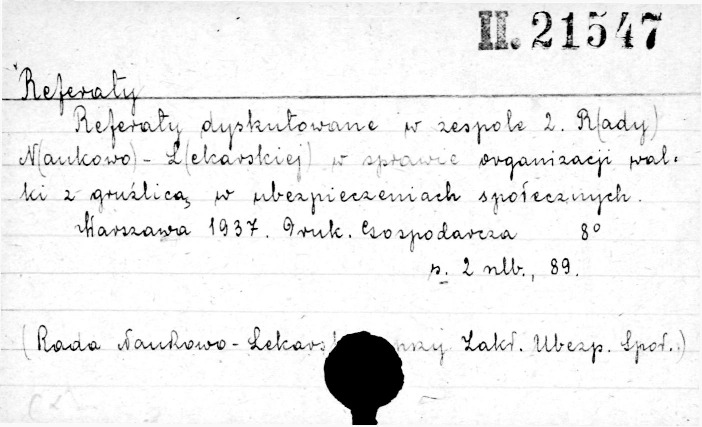 II. 21547
Referaty
Referaty dyskutowane w zespole 2. R(ady)
N(aukowo) - L(ekarskiej) w sprawie organizacji wal-
ki z gruźlicą w ubezpieczeniach społecznych.
Warszawa 1937. Druk. Gospodarcza 8°
s. 2 nlb., 89.
(Rada Naukowo - Lekarsk przy Zakł. Ubezp. Społ.)